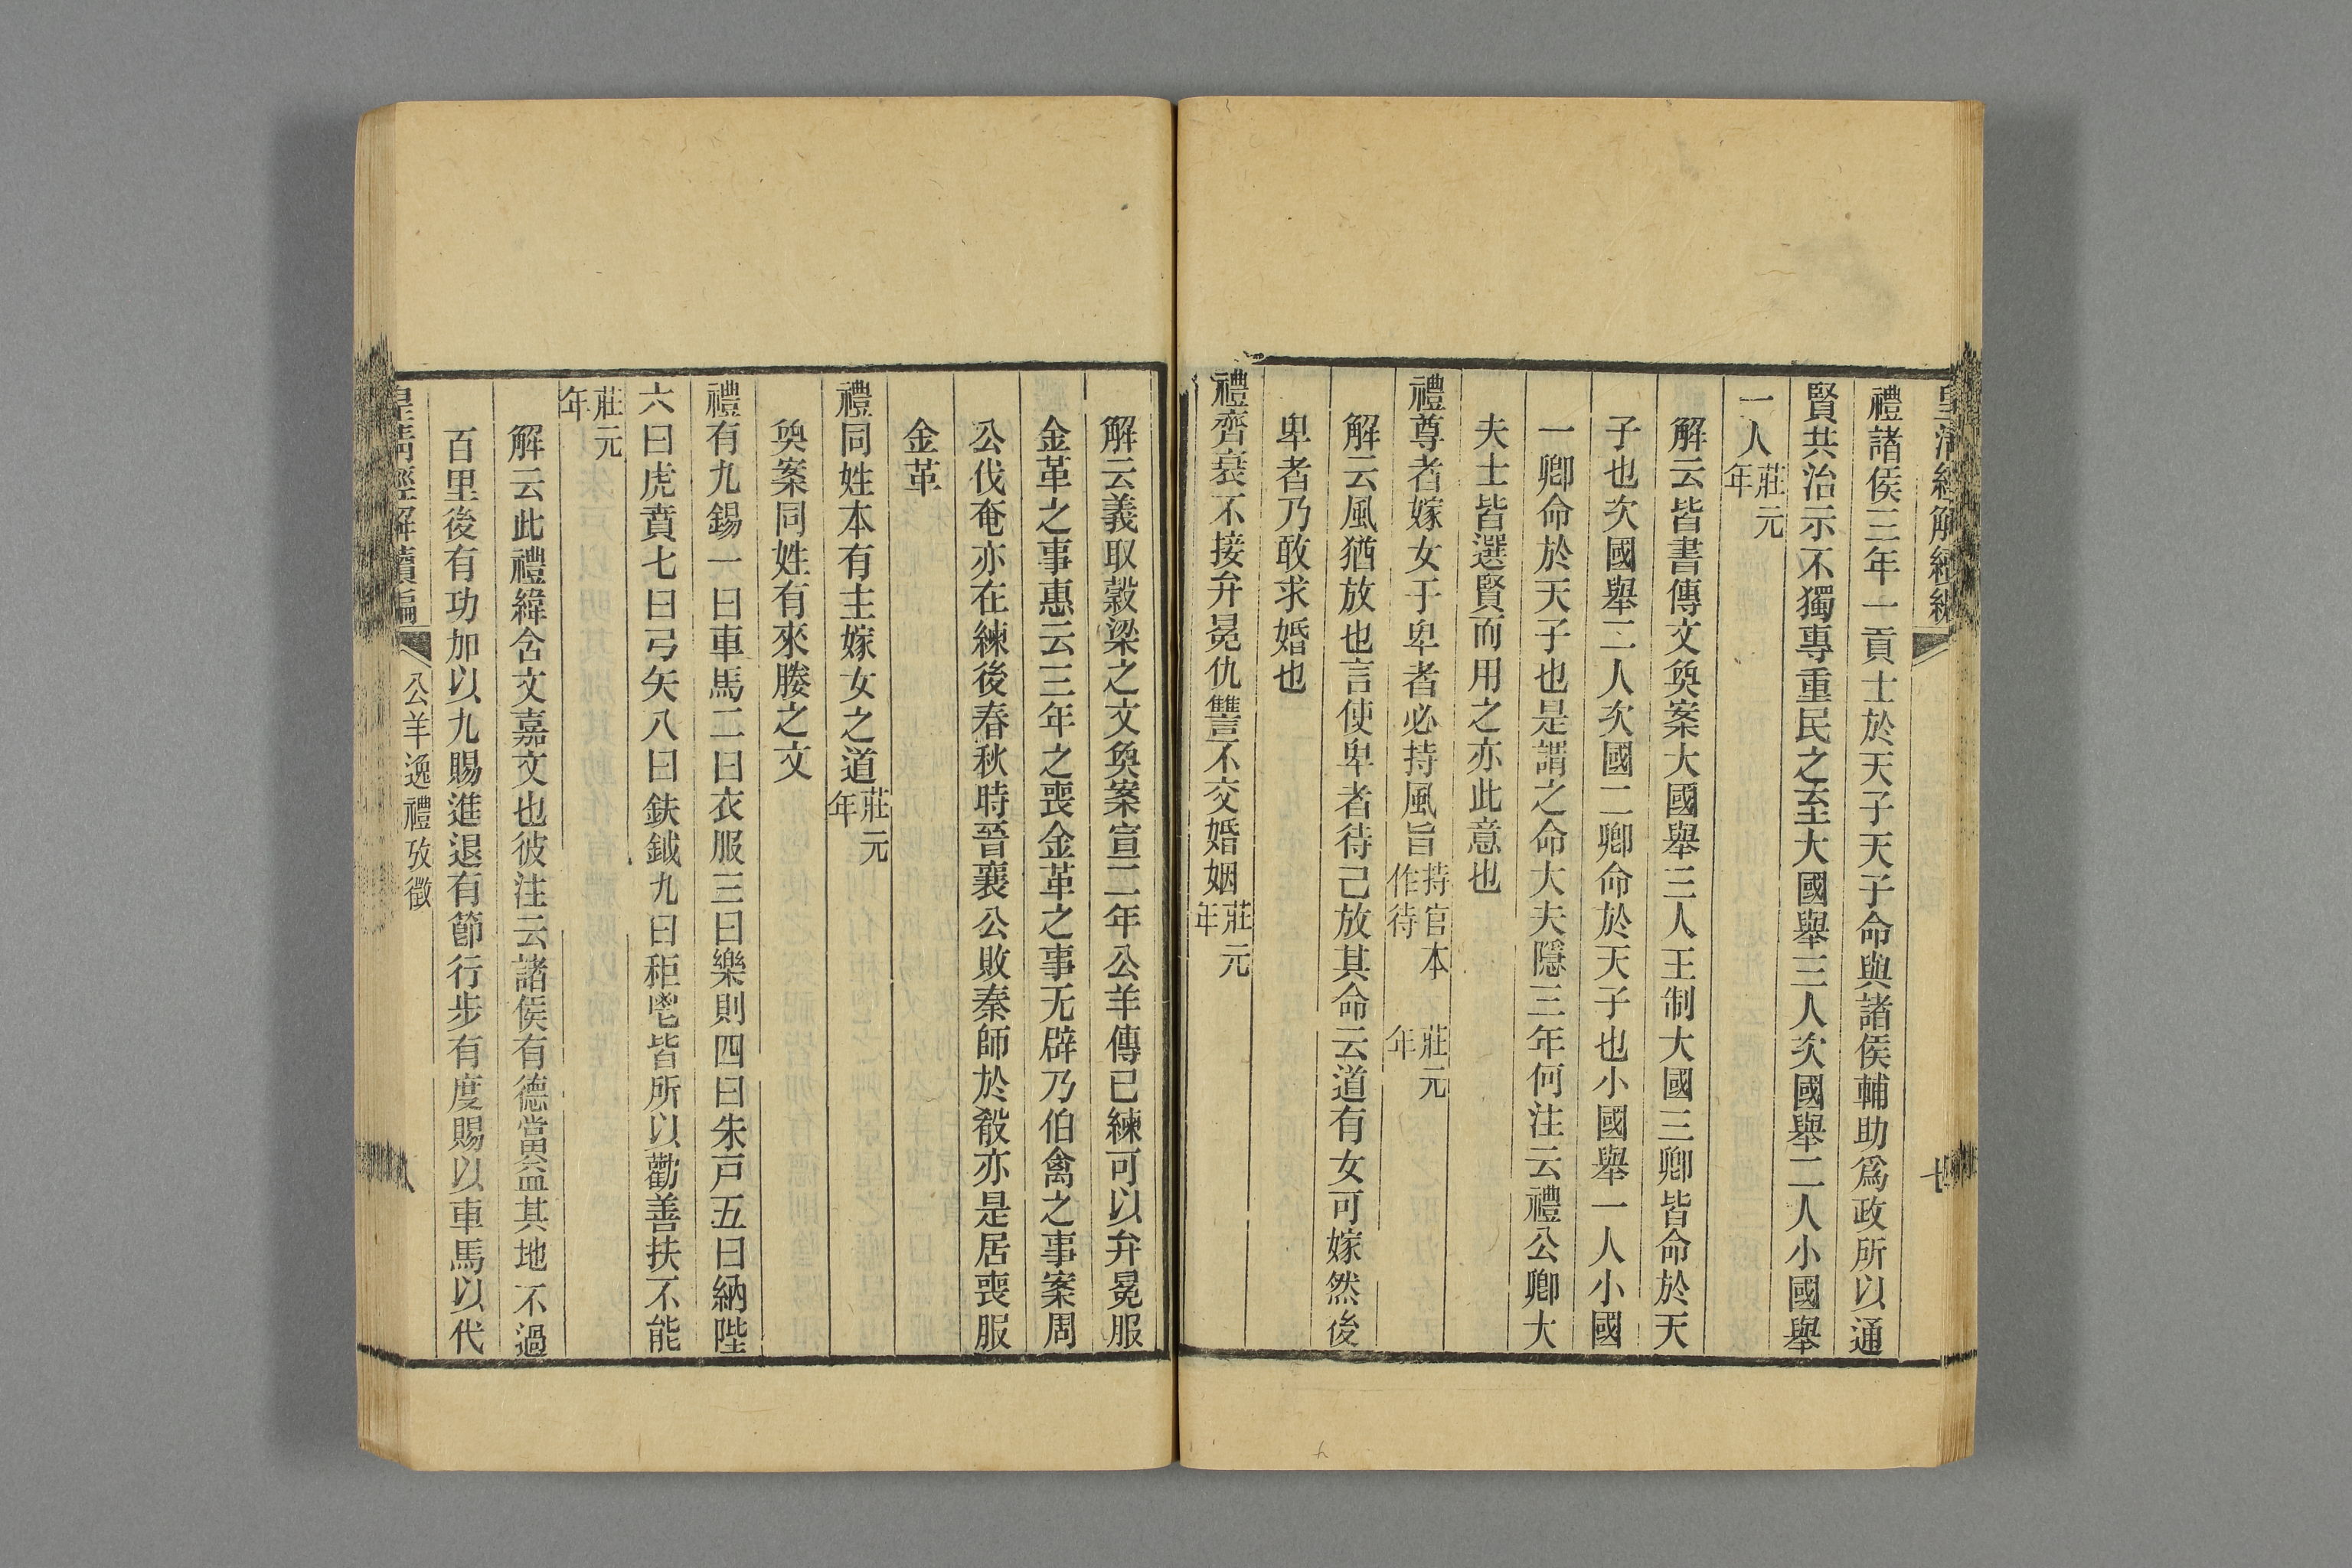 禮諸侯三年一貢士於天子天子命與諸侯輔助爲政所以通
賢共治示不獨專重民之至大國舉三人次國舉二人小國舉
一人莊元年
解云皆書傳文奐案大國舉三人王制大國三卿皆命於天
子也次國舉二人次國二卿命於天子也小國舉一人小國
一卿命於天子也是謂之命大夫隱三年何注云禮公卿大
夫士皆選賢而用之亦此意也
禮尊者嫁女于卑者必持風旨持官本作待 莊元年
解云風猶放也言使卑者待己放其命云道有女可嫁然後
卑者乃敢求婚也
禮齊衰不接弁冕仇讐不交婚姻莊元年
解云義取穀梁之文奐案宣二年公羊傳已練可以弁冕服
金革之事惠云三年之喪金革之事无辟乃伯禽之事案周
公伐奄亦在練後春秋時晉襄公敗秦師於殽亦是居喪服
金革
禮同姓本有主嫁女之道莊元年
奐案同姓有來媵之文
禮有九錫一曰車馬二曰衣服三曰樂則四曰朱戸五曰納陛
六曰虎賁七曰弓矢八曰鈇鉞九曰秬鬯皆所以勸善扶不能
莊元年
解云此禮緯含文嘉文也彼注云諸侯有德當益其地不過
百里後有功加以九賜進退有節行步有度賜以車馬以代
皇清經解續編
公羊逸禮攷徵
八